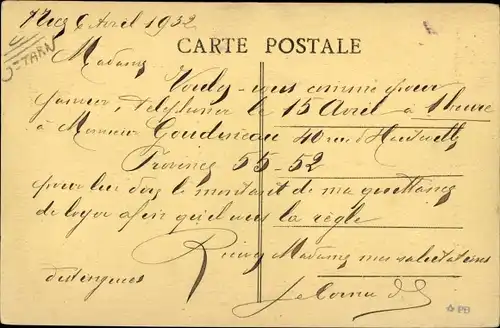 6 Avril 1932
TARN
CARTE POSTALE
Madame
Voulez-vous comme pour
janvier, téléphoner le 15 Avril à 1 heure
à Monsieur Goudineau 40 rue d'Hauteville
Provence 55-52
pour lui dire le montant de ma quittance
de loyer afin qu'il vous la règle
Recevez Madame mes salutations
distinguées
PB